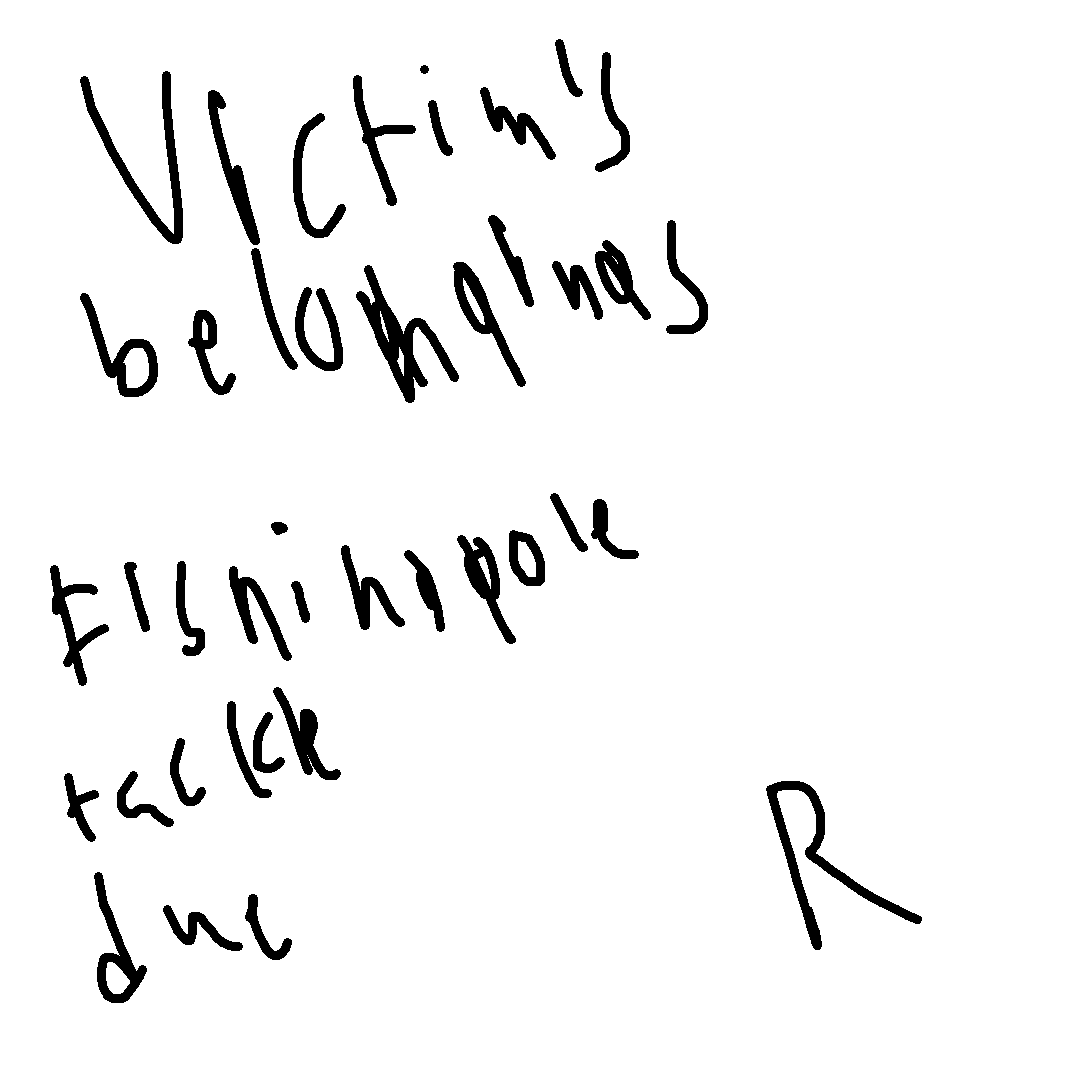 Victim's
belongings
Fishing pole
tackle
R